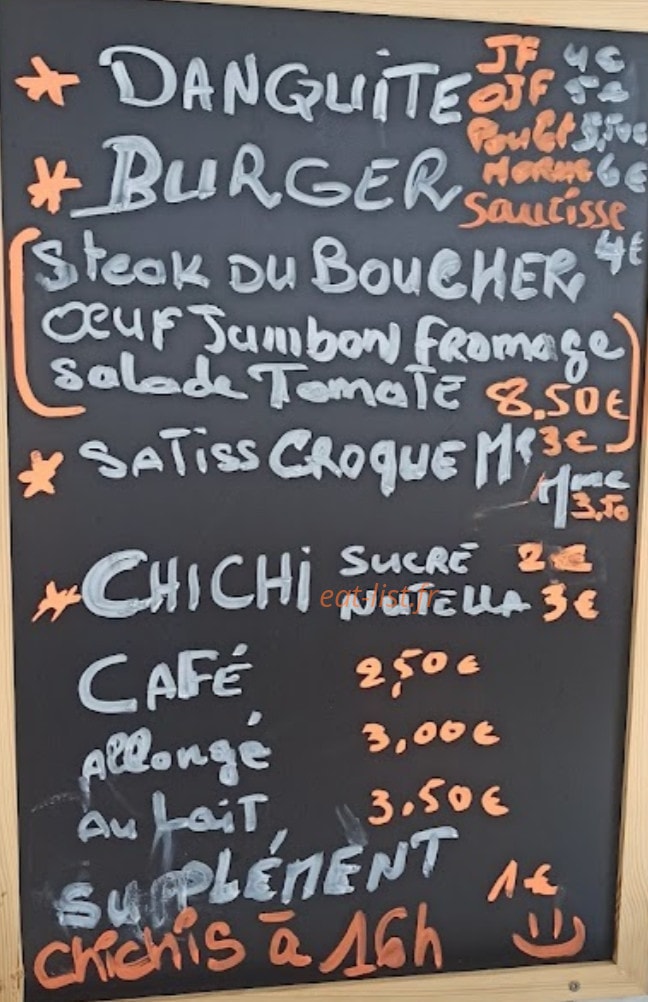 * DANQUITE JF 4€
OJF 5€
Poulet 5,50€
* BURGER MORUE 6€
Saucisse 4€
(Steak DU BOUCHER
Œuf Jambon Fromage
Salade Tomate 8,50€)
* SATISS CROQUE Mr 3€
Mme 3,50
* CHICHI SUCRÉ 2€
NUTELLA 3€
eat-list.fr
CAFÉ 2,50€
Allongé 3,00€
Au Lait 3,50€
SUPPLÉMENT 1€
Chichis à 16h